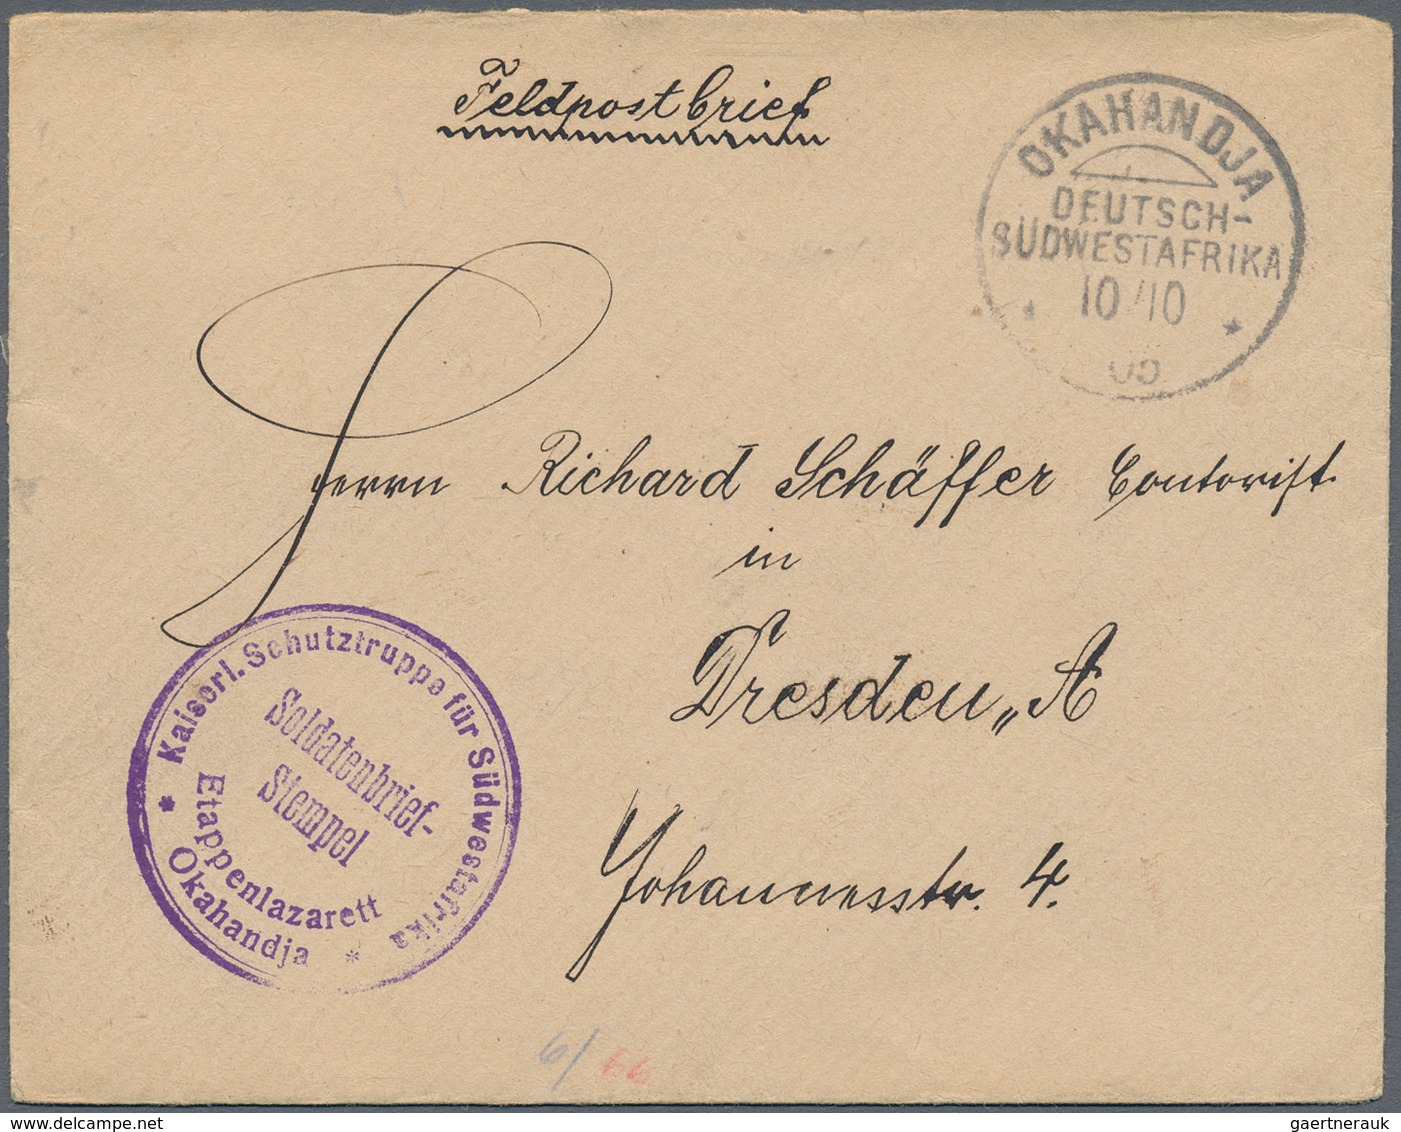 Feldpostbrief
OKAHANDJA
DEUTSCH-
SÜDWESTAFRIKA
10/10
05
Herrn Richard Schäffer Contorist
in
Dresden „A
Johannesstr. 4.
* Kaiserl. Schutztruppe für Südwestafrika *
Soldatenbrief-
Stempel
Etappenlazarett
Okahandja
6/66
gaertnerauk